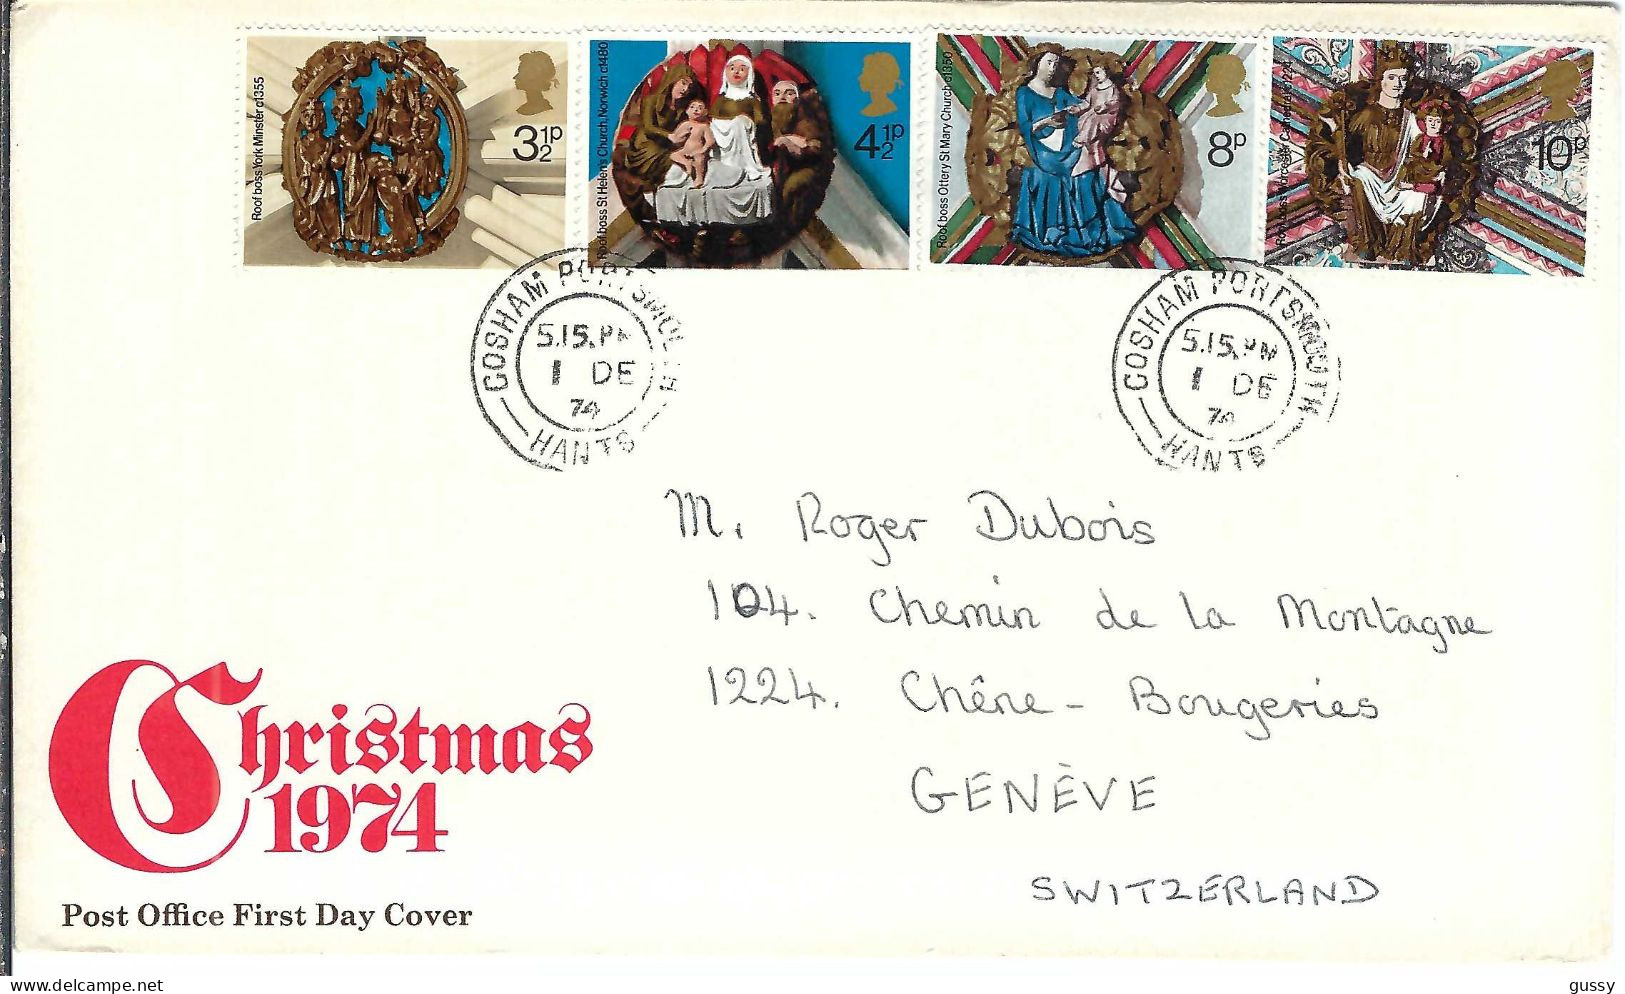 Roof boss York Minster c1355
3½P
Roof boss St Helen's Church, Norwich c1480
4½P
Roof boss Ottery St Mary Church c1350
8P
10P
COSHAM PORTSMOUTH
5.15.PM
1 DE
74
HANTS
COSHAM PORTSMOUTH
5.15.PM
1 DE
74
HANTS
M. Roger Dubois
104. Chemin de la Montagne
1224. Chêne-Bougeries
GENÈVE
SWITZERLAND
Christmas
1974
Post Office First Day Cover
gussy